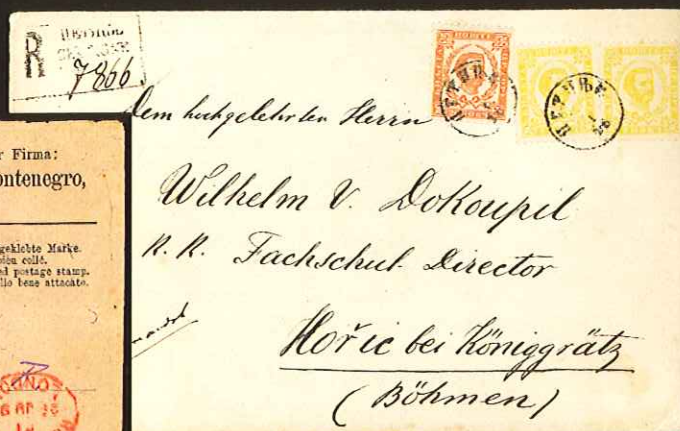 R
7866
Dem hochgelehrten Herrn
Wilhelm V. Dokoupil
K. K. Fachschul Director
Hořic bei Königgrätz
(Böhmen)
ЦЕТИЊЕ
ЦЕТИЊЕ
Firma:
ontenegro,
geklebte Marke.
colié.
ed postage stamp.
llo bene attacato.